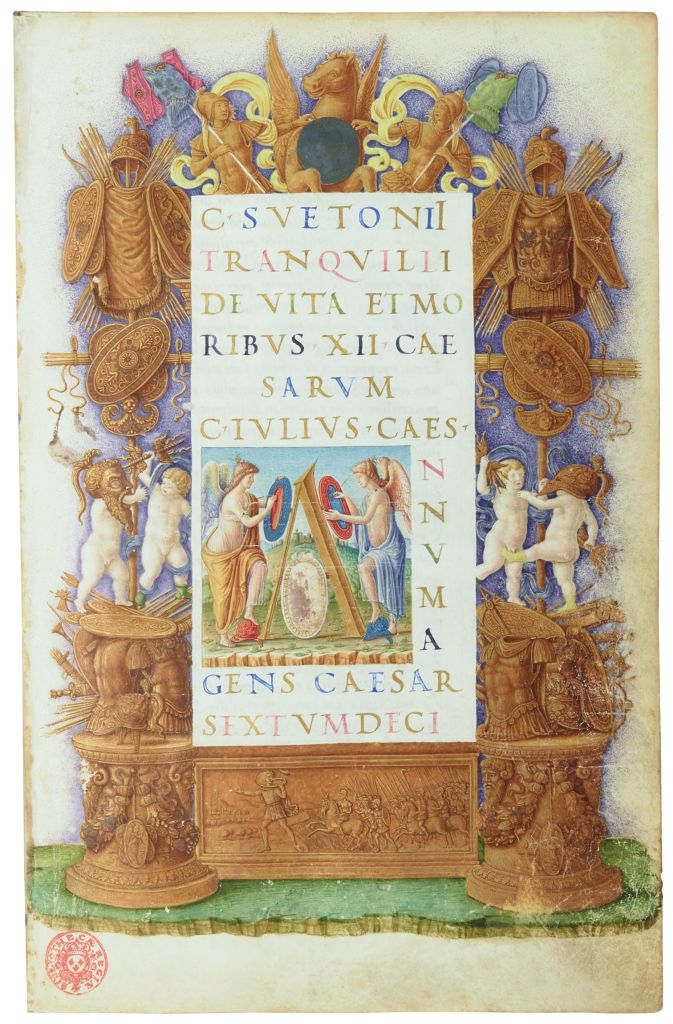 C·SVETONII
TRANQVILLI
DE VITA ET MO
RIBVS·XII·CAE
SARVM
C·IVLIVS·CAES·
AN
N
V
M
A
GENS CAESAR
SEXTVMDECI
BIBLIOTHECÆ REGIÆ